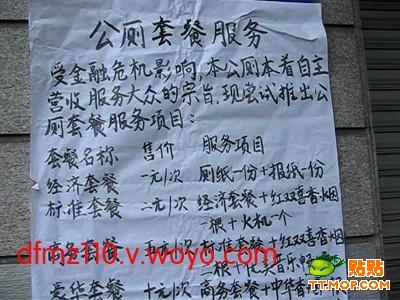 公厕套餐服务
受金融危机影响,本公厕本着自主
营收服务大众的宗旨,现尝试推出公
厕套餐服务项目:
套餐名称 售价 服务项目
经济套餐 一元/次 厕纸一份+报纸一份
标准套餐 二元/次 经济套餐+红双喜香烟
一根+火机一个
商务套餐 五元/次 标准套餐+红双喜香烟
一根+优美音乐
豪华套餐 十元/次 商务套餐+中华香
dfmz110.v.woyo.com
贴贴
TT.MOP.COM